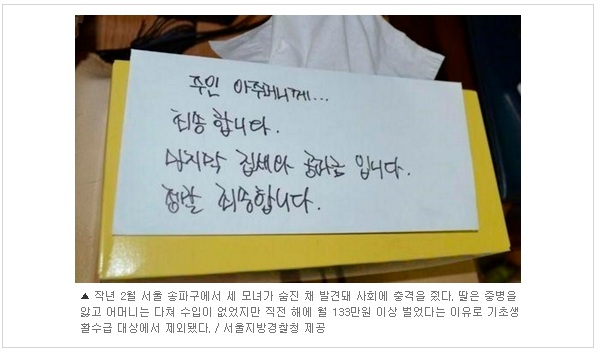 주인 아주머니께...
죄송합니다.
마지막 집세와 공과금 입니다.
정말 죄송합니다.
▲ 작년 2월 서울 송파구에서 세 모녀가 숨진 채 발견돼 사회에 충격을 줬다. 딸은 중병을
앓고 어머니는 다쳐 수입이 없었지만 직전 해에 월 133만원 이상 벌었다는 이유로 기초생
활수급 대상에서 제외됐다. / 서울지방경찰청 제공